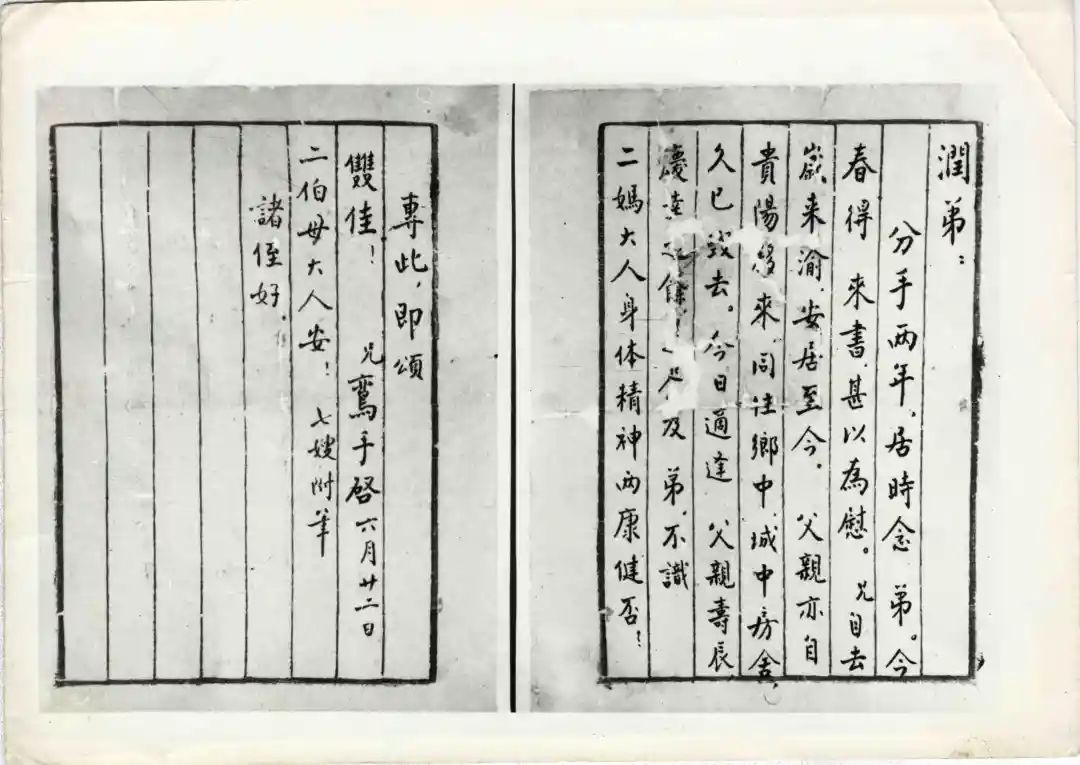 潤弟：
分手兩年，居時念 弟。今
春得 來書，甚以為慰。兄自去
歲来渝，安居至今。 父親亦自
貴陽移來，同住鄉中，城中房舍，
久已毀去。今日適逢 父親壽辰，
慶 餘， 及 弟，不識
二媽大人身体精神兩康健否！
專此，即頌
雙佳！ 兄鸞手啓 六月廿二日
二伯母大人安！ 七嫂附筆
諸侄好．